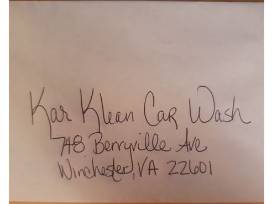 Kar Klean Car Wash
748 Berryville Ave
Winchester, VA 22601